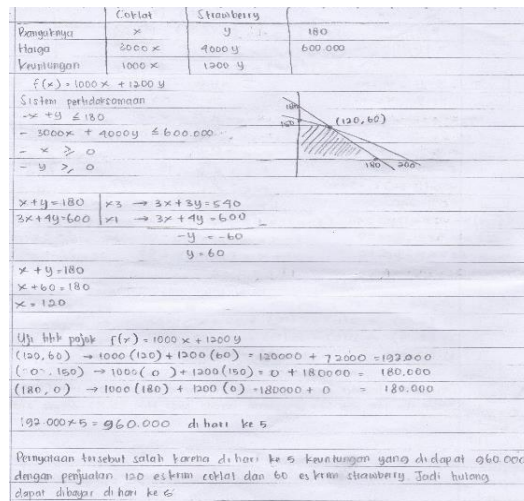 Coklat Strawberry
Banyaknya x y 180
Harga 3000 x 4000 y 600.000
Keuntungan 1000 x 1200 y
f(x) = 1000 x + 1200 y
Sistem pertidaksamaan
-x + y ≤ 180
- 3000x + 4000y ≤ 600.000
- x ≥ 0
- y ≥ 0
180
150
(120,60)
180 200
x + y = 180 | x3 → 3x + 3y = 540
3x + 4y = 600 | x1 → 3x + 4y = 600 -
-y = -60
y = 60
x + y = 180
x + 60 = 180
x = 120
Uji titik pojok f(x) = 1000 x + 1200 y
(120,60) → 1000 (120) + 1200 (60) = 120000 + 72000 = 192.000
(0, 150) → 1000 (0) + 1200 (150) = 0 + 180000 = 180.000
(180, 0) → 1000 (180) + 1200 (0) = 180000 + 0 = 180.000
192.000 x 5 = 960.000 di hari ke 5
Pernyataan tersebut salah karena di hari ke 5 keuntungan yang didapat 960.000
dengan penjualan 120 es krim coklat dan 60 es krim strawberry. Jadi hutang
dapat dibayar di hari ke 6